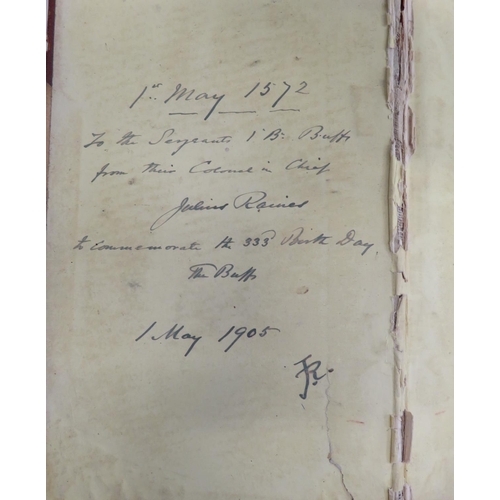 1st May 1572
To the Sergeants 1 Bn Buffs
from their Colonel in Chief
Julius Raines
to commemorate the 333d Birth Day
The Buffs
1 May 1905
JR.